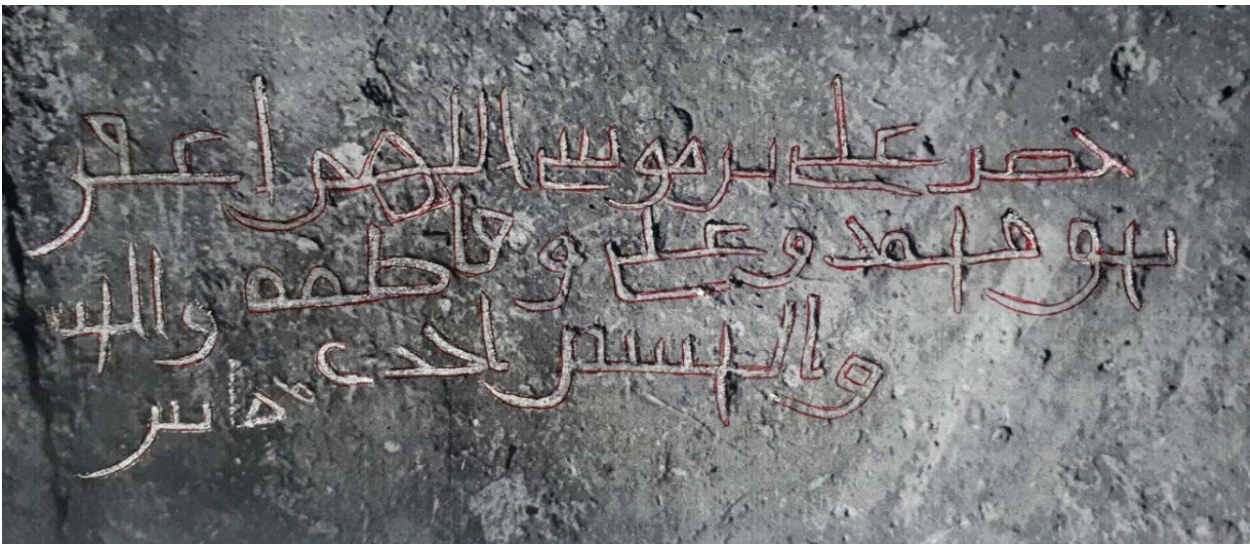 حضر علي بن موسى اللهم اغفر
بحق محمد وعلي وفاطمة والحسن
والحسين احد